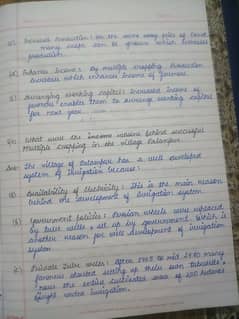 Increased Production: on the same piece of land,
many crops can be grown which increases
production.
Enhances Income: By multiple cropping Production
increases which enhances income of farmers.
Arranging working capital: Increased income of
farmers enables them to arrange working capital
for next year.
What were the income reasons behind successful
Multiple cropping in the village Palampur
Ans: The village of Palampur has a well developed
system of irrigation because:
Availability of Electricity: This is the main reason
behind the development of irrigation system.
Government policies: Persian wheels were replaced
by tube wells, set up by government, which is
another reason for well development of irrigation
system.
Private tube wells: After 1965 to mid 1970 many
farmers started setting up their own tubewells.
Now the entire cultivated area of 200 hectares
under irrigation.